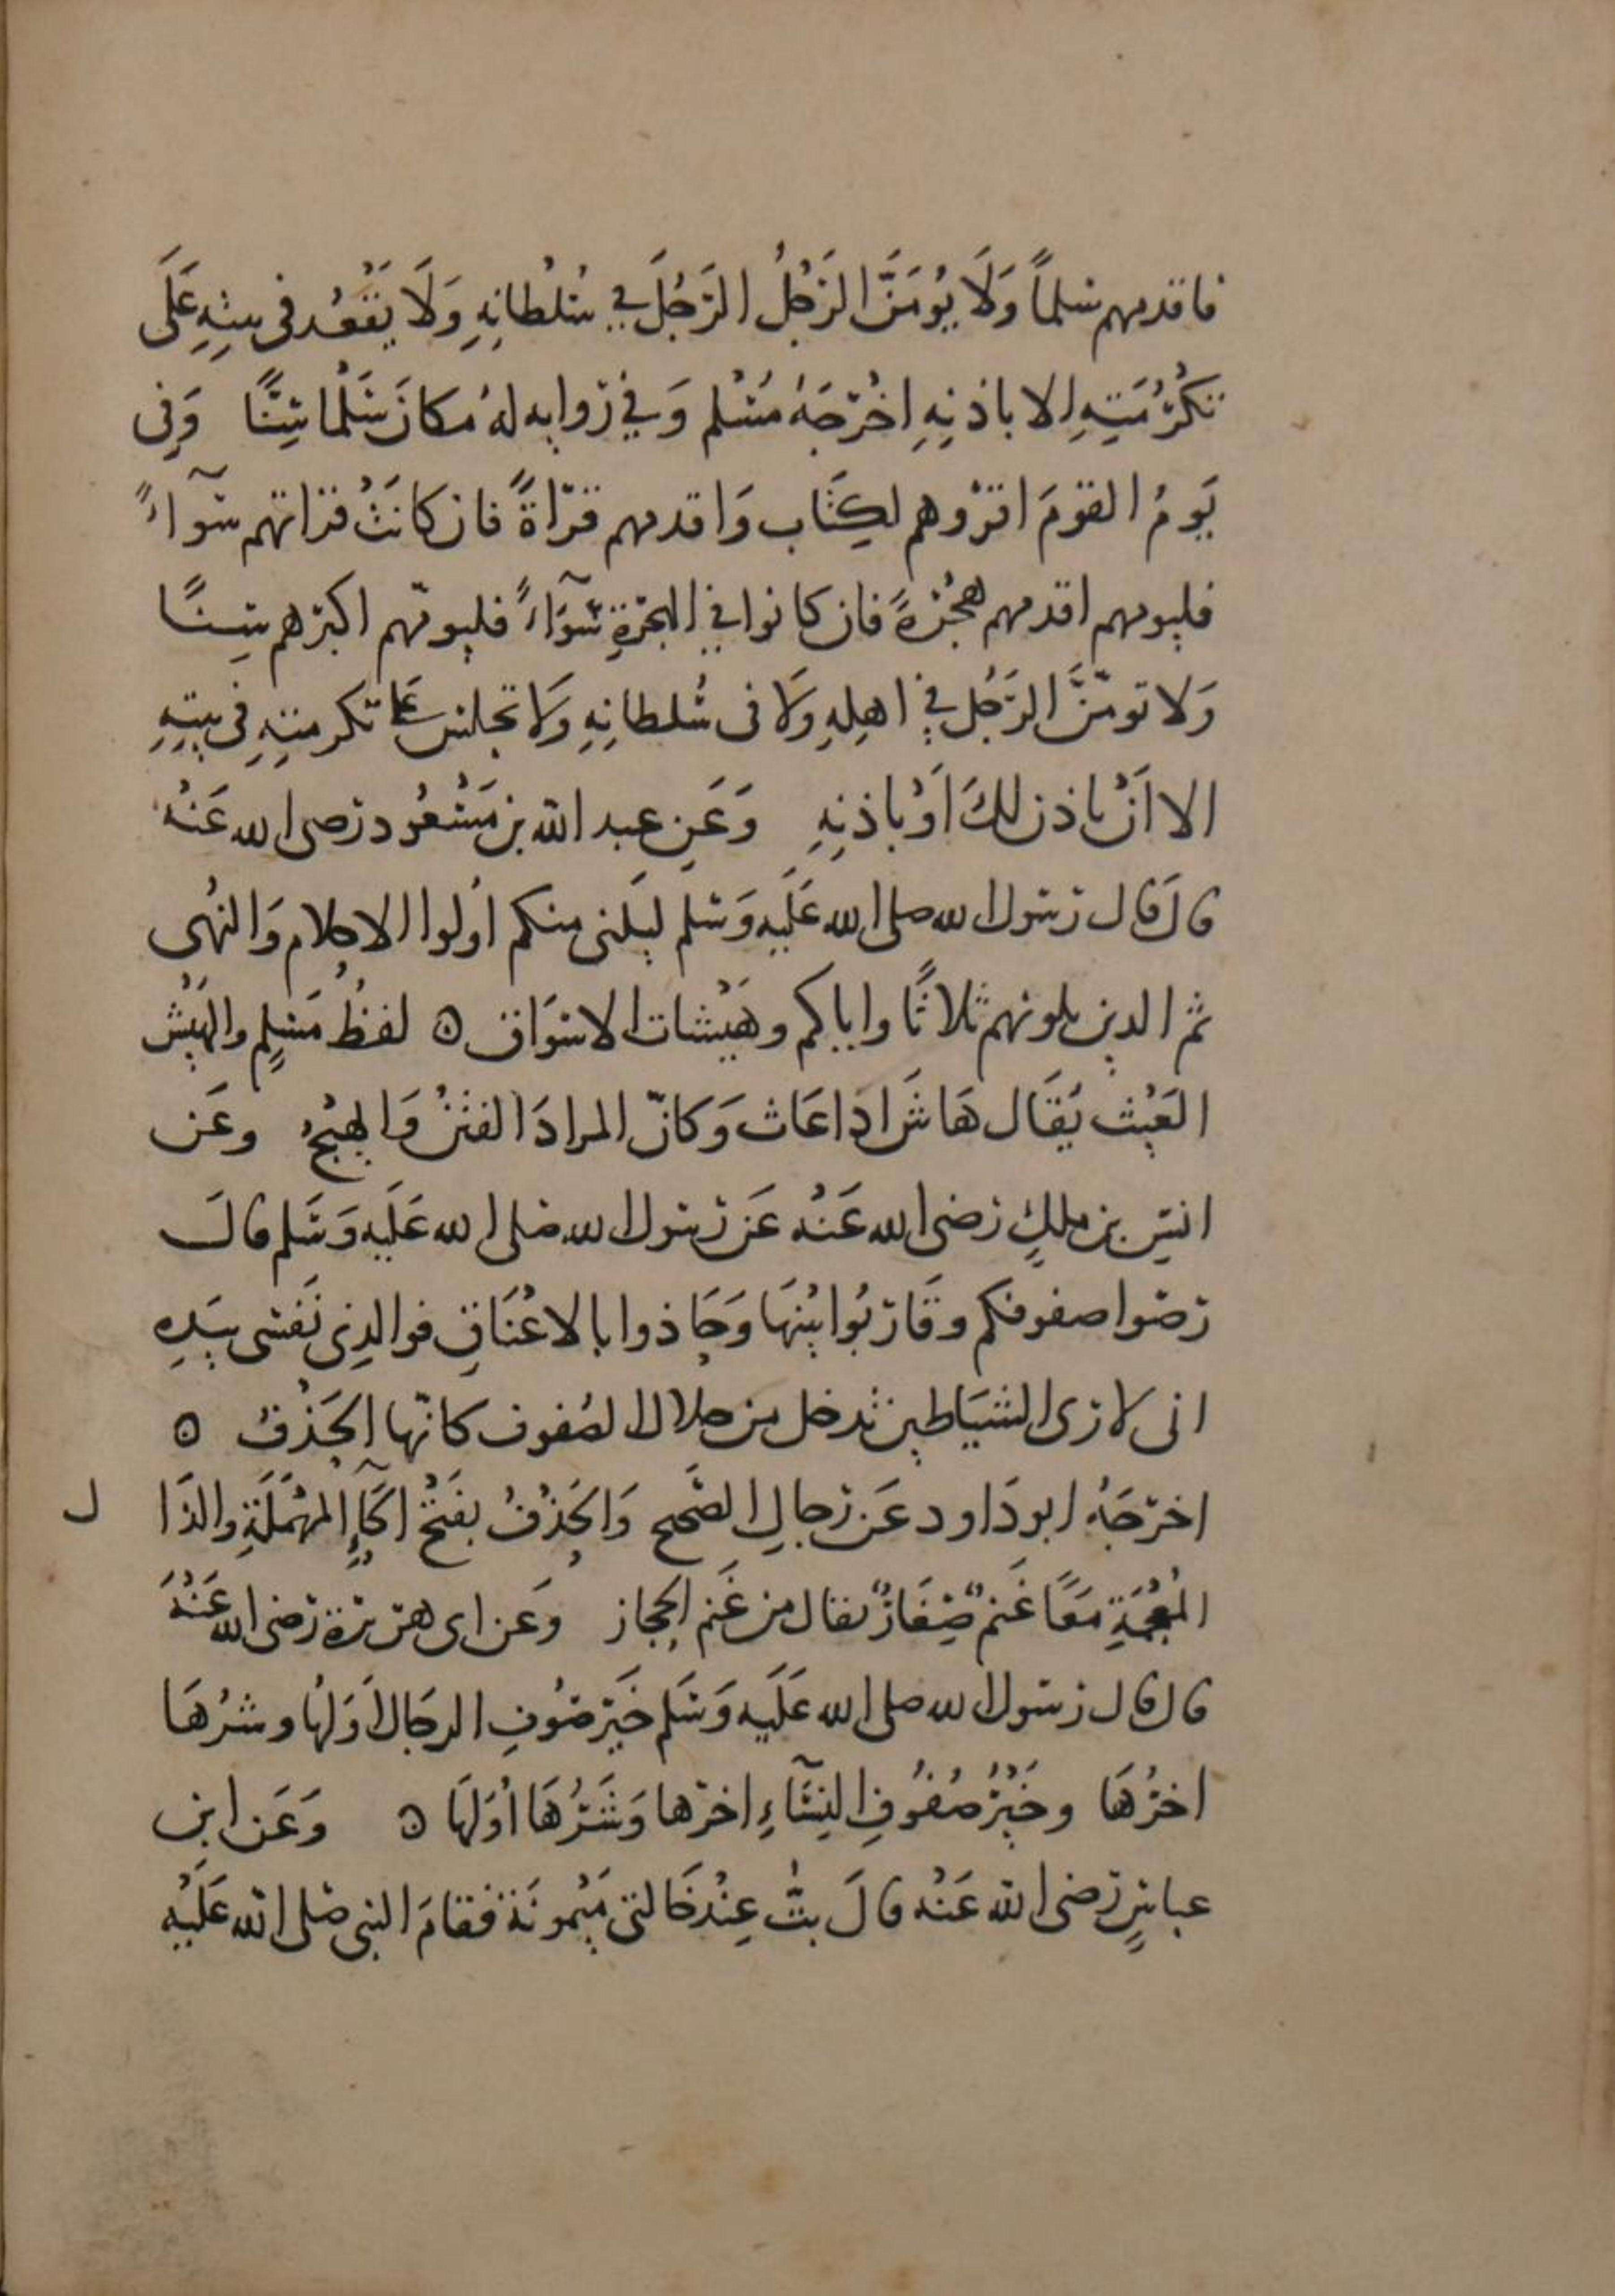 فاقدمهم سلماً وَلَا يُومَنَّ الرَجُلُ الرَجُلَ في سُلْطانِهِ وَلَا يَقْعُد في بيتِهِ عَلَى
تَكْرُمَتِهِ الا باذنِهِ اخْرَجَهُ مُسْلم وَفي رواية لهُ مكانَ سَلْما سِنًّا وَفى
يَومُ القومَ اقرؤهم لكِتَاب وَاقدمهم قرّاةً فان كانَتْ قراتهم سَوآءً
فليومهم اقدمهم هجْرةً فان كانوا في الهجرةِ سَوَآءً فليومّهم اكبرهم سِنًا
وَلا تومّنَّ الرَجُل في اهلِهِ وَلا فى سُلطانِهِ وَلا تجلس على تكرمتِهِ فى بيتِهِ
الا اَنْ ياذن لكَ اَوْ باذنِهِ وَعَنِ عبد الله بن مَسْعُود رضى الله عَنْه
قالَ قال رسول الله صلى الله عَلَيه وَسلم ليَلنى منكم اُولوا الاحلام وَالنهُى
ثم الذين يلونهم ثلاثًا واياكم وهَيْشات الاسْوَاق ه لفظُ مسلِمٍ والهَيْش
العَيْث يُقَال هَاشَ اذا عَاث وَكانّ المرادَ الفتَنْ وَالهيْجُ وعَن
انسِ بن ملكٍ رضى الله عَنْه عَن رسول الله صلى الله عَلَيه وَسَلم قالَ
رصّوا صفوفكم وقَاربُوا بيْنهَا وَحَاذوا بالاعْنَاقِ فوالذِى نَفسى بيَدِهِ
انى لارى الشيَاطين تدخل من خلال الصُفوف كانّها الحَذْفُ ه
اخرَجَهُ ابو دَاود عَن رجالِ الصَّحيح وَالحَذْفُ بفَتْحْ الحَآءِ المهْمَلَةِ والذا ل
المُعْجَمَةِ مَعًا غَنم صِغَارٌ يقال من غَنم الحجاز وَعَن ابى هريرة رضى الله عَنْهُ
قال قال رسول الله صلى الله عَلَيه وَسَلم خَير صُوُفِ الرجَال اَوَلهُا وشرُهَا
اخرُهَا وخَيْرُ صُفُوفِ النِسَآءِ اخرها وَشَرُهَا اُوَلهَا ه وَعَن ابن
عباسٍ رضى الله عَنْه قالَ بتُّ عِنْد خَالتى مَيْمونَة فقامَ النبى صَلى الله عَلَيْه